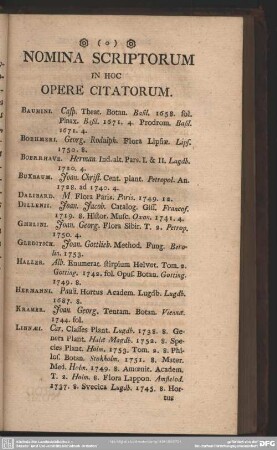 ( o )
NOMINA SCRIPTORUM
IN HOC
OPERE CITATORUM.
BAUHINI. Casp. Theat. Botan. Basil. 1658. fol.
Pinax. Basil. 1671. 4. Prodrom. Basil.
1671. 4.
BOEHMERI. Georg. Rudolph. Flora Lipsiæ. Lips.
1750. 8.
BOERRHAVE. Herman. Ind. alt. Pars I. & II. Lugdb.
1720. 4.
BUXBAUM. Joan. Christ. Cent. plant. Petropol. An.
1728. ad 1740. 4.
DALIBARD. M. Flora Paris. Paris. 1749. 12.
DILLENII. Joan. Jacob. Catalog. Giss. Francof.
1719. 8. Histor. Musc. Oxon. 1741. 4.
GMELINI. Joan. Georg. Flora Sibir. T. 2. Petrop.
1750. 4.
GLEDITSCH. Joan. Gottlieb. Method. Fung. Bero-
lin. 1753.
HALLER. Alb. Enumerat. stirpium Helvet. Tom. 2.
Gotting. 1742. fol. Opus. Botan. Gotting.
1749. 8.
HERMANNI. Paull. Hortus Academ. Lugdb. Lugdb.
1687. 8.
KRAMER. Joan. Georg. Tentam. Botan. Viennæ.
1744. fol.
LINNÆI. Car. Classes Plant. Lugdb. 1738. 8. Ge-
nera Plant. Halæ Magdb. 1752. 8. Spe-
cies Plant. Holm. 1753. Tom. 2. 8. Phi-
losof. Botan. Stokholm. 1751. 8. Mater.
Med. Holm. 1749. 8. Amœnit. Academ.
T. 2. Holm. 8. Flora Lappon. Amstelod.
1737. 8. Svecica Lugdb. 1745. 8. Hor-
tus